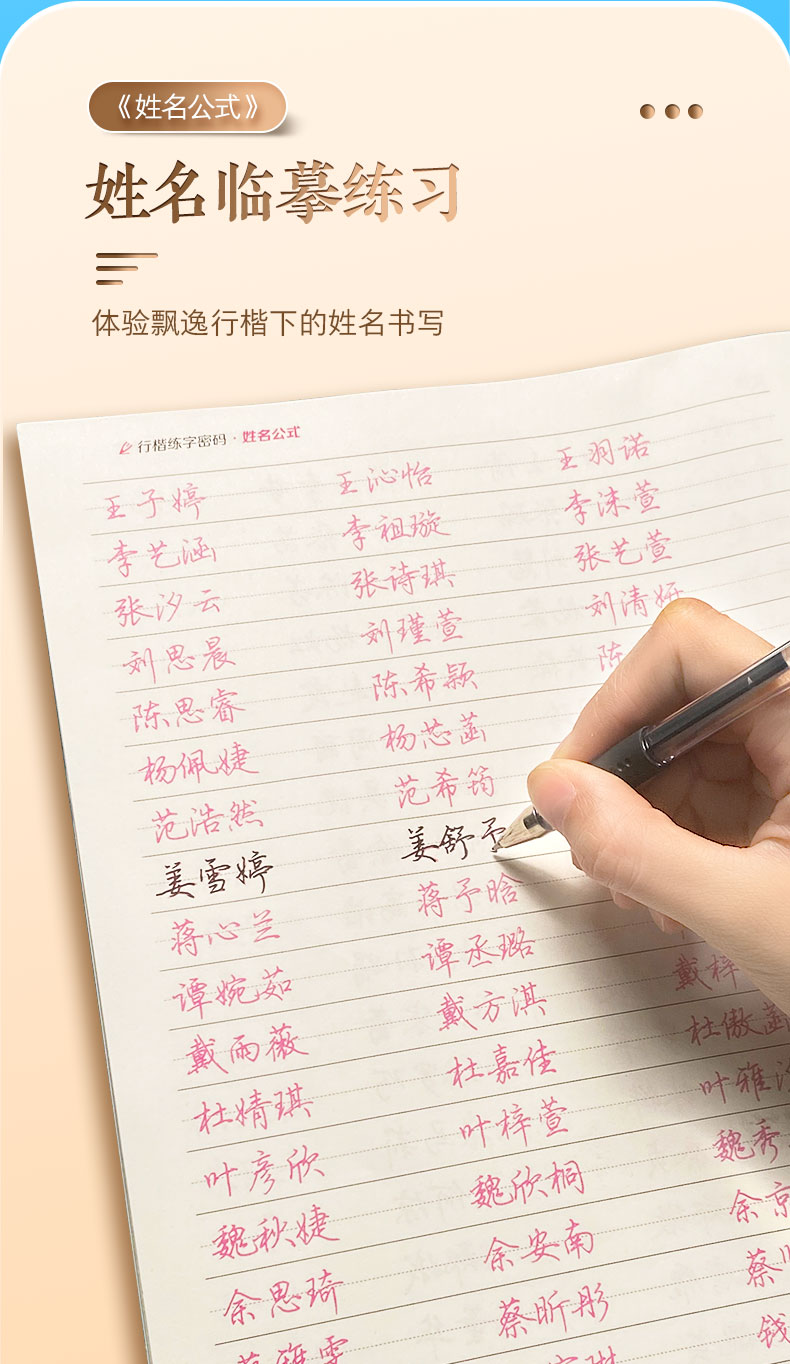 《姓名公式》
姓名临摹练习
体验飘逸行楷下的姓名书写
行楷练字密码·姓名公式
王子婷 王沁怡 王羽诺
李艺涵 李祖璇 李沫萱
张汐云 张诗琪 张艺萱
刘思晨 刘瑾萱 刘清妍
陈思睿 陈希颖 陈
杨佩婕 杨芯菡
范浩然 范希筠
姜雪婷 姜舒予
蒋心兰 蒋予晗
谭婉茹 谭丞璐
戴雨薇 戴方淇 戴梓
杜婧琪 杜嘉佳 杜傲菡
叶彦欣 叶梓萱 叶雅
魏秋婕 魏欣桐 魏秀
余思琦 余安南 余京
蔡昕彤 蔡
钱